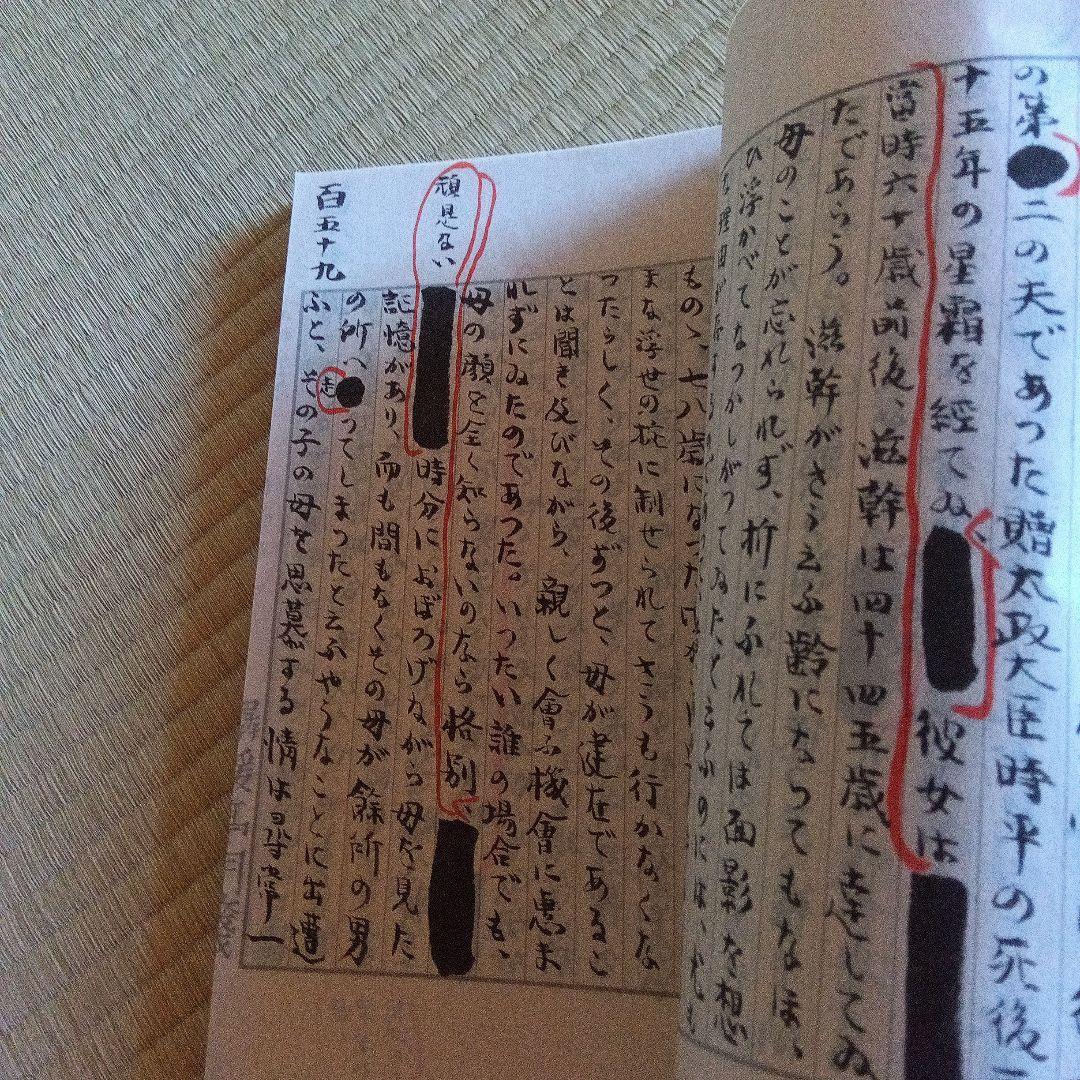 の第二の夫であつた贈太政大臣時平の死後
十五年の星霜を経てゐ 彼女は
當時六十歳前後、滋幹は四十四五歳に達してゐ
たであらう。滋幹がさう云ふ齢になつてもなほ、
母のことが忘れられず、折にふれては面影を想
ひ浮かべてなつかしがつてゐたと云ふのには、
もの、七八歳になつた
まな浮世の掟に制せられてさうも行かなくな
つたらしく、その後ずつと、母が健在であるこ
とは聞き及びながら、親しく會ふ機會に惠ま
れずにゐたのであつた。いつたい誰の場合でも、
母の顔を全く知らないのなら格別、
頑是ない
時分におぼろげながら母を見た
記憶があり、而も間もなくその母が餘所の男
の所へ走つてしまつたと云ふやうなことに出遭
ふと、その子の母を思慕する情は尋常一
百五十九